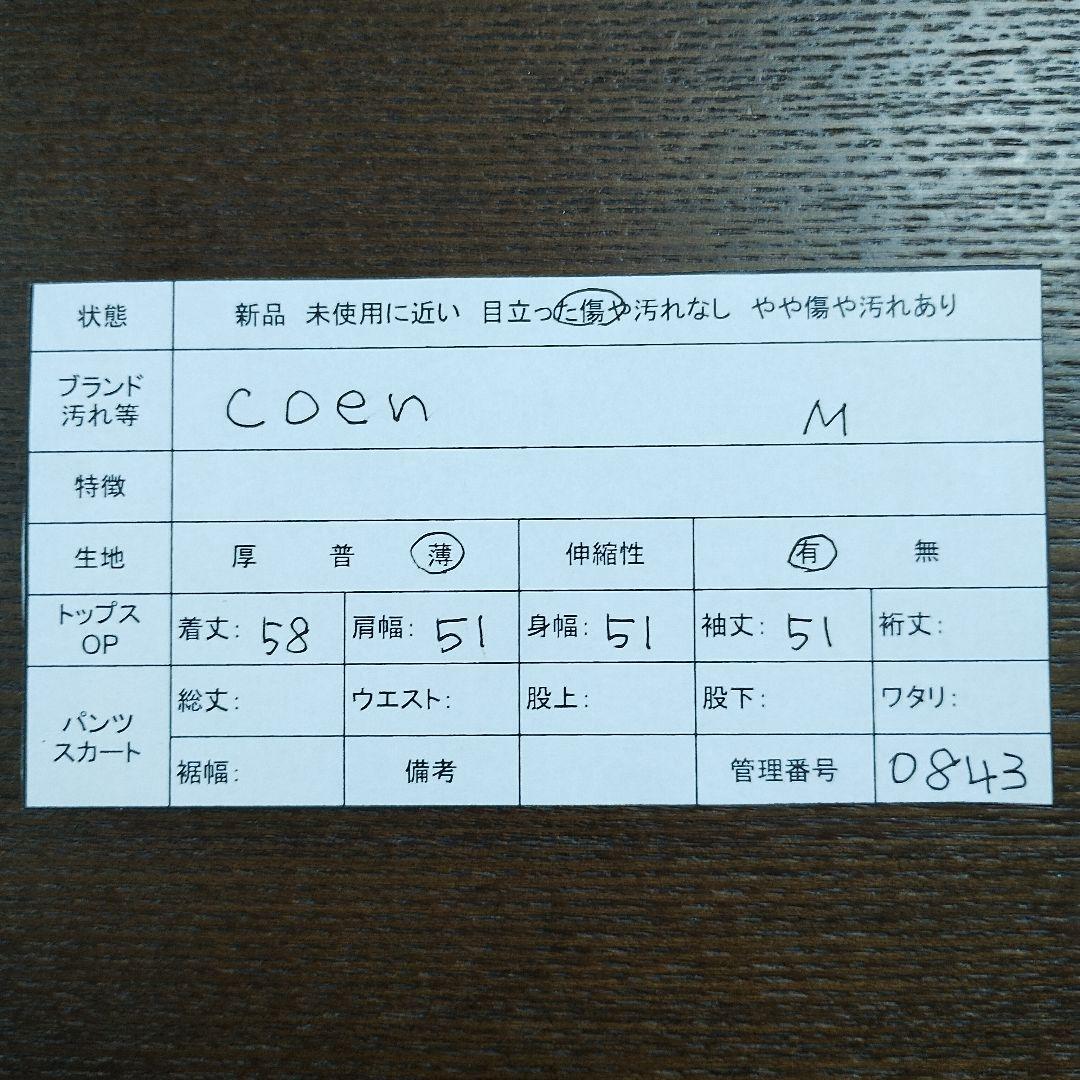 状態 新品 未使用に近い 目立った傷や汚れなし やや傷や汚れあり
ブランド
汚れ等 coen M
特徴
生地 厚 普 薄 伸縮性 有 無
トップス
OP 着丈: 58 肩幅: 51 身幅: 51 袖丈: 51 裄丈:
パンツ
スカート 総丈: ウエスト: 股上: 股下: ワタリ:
裾幅: 備考 管理番号 0843